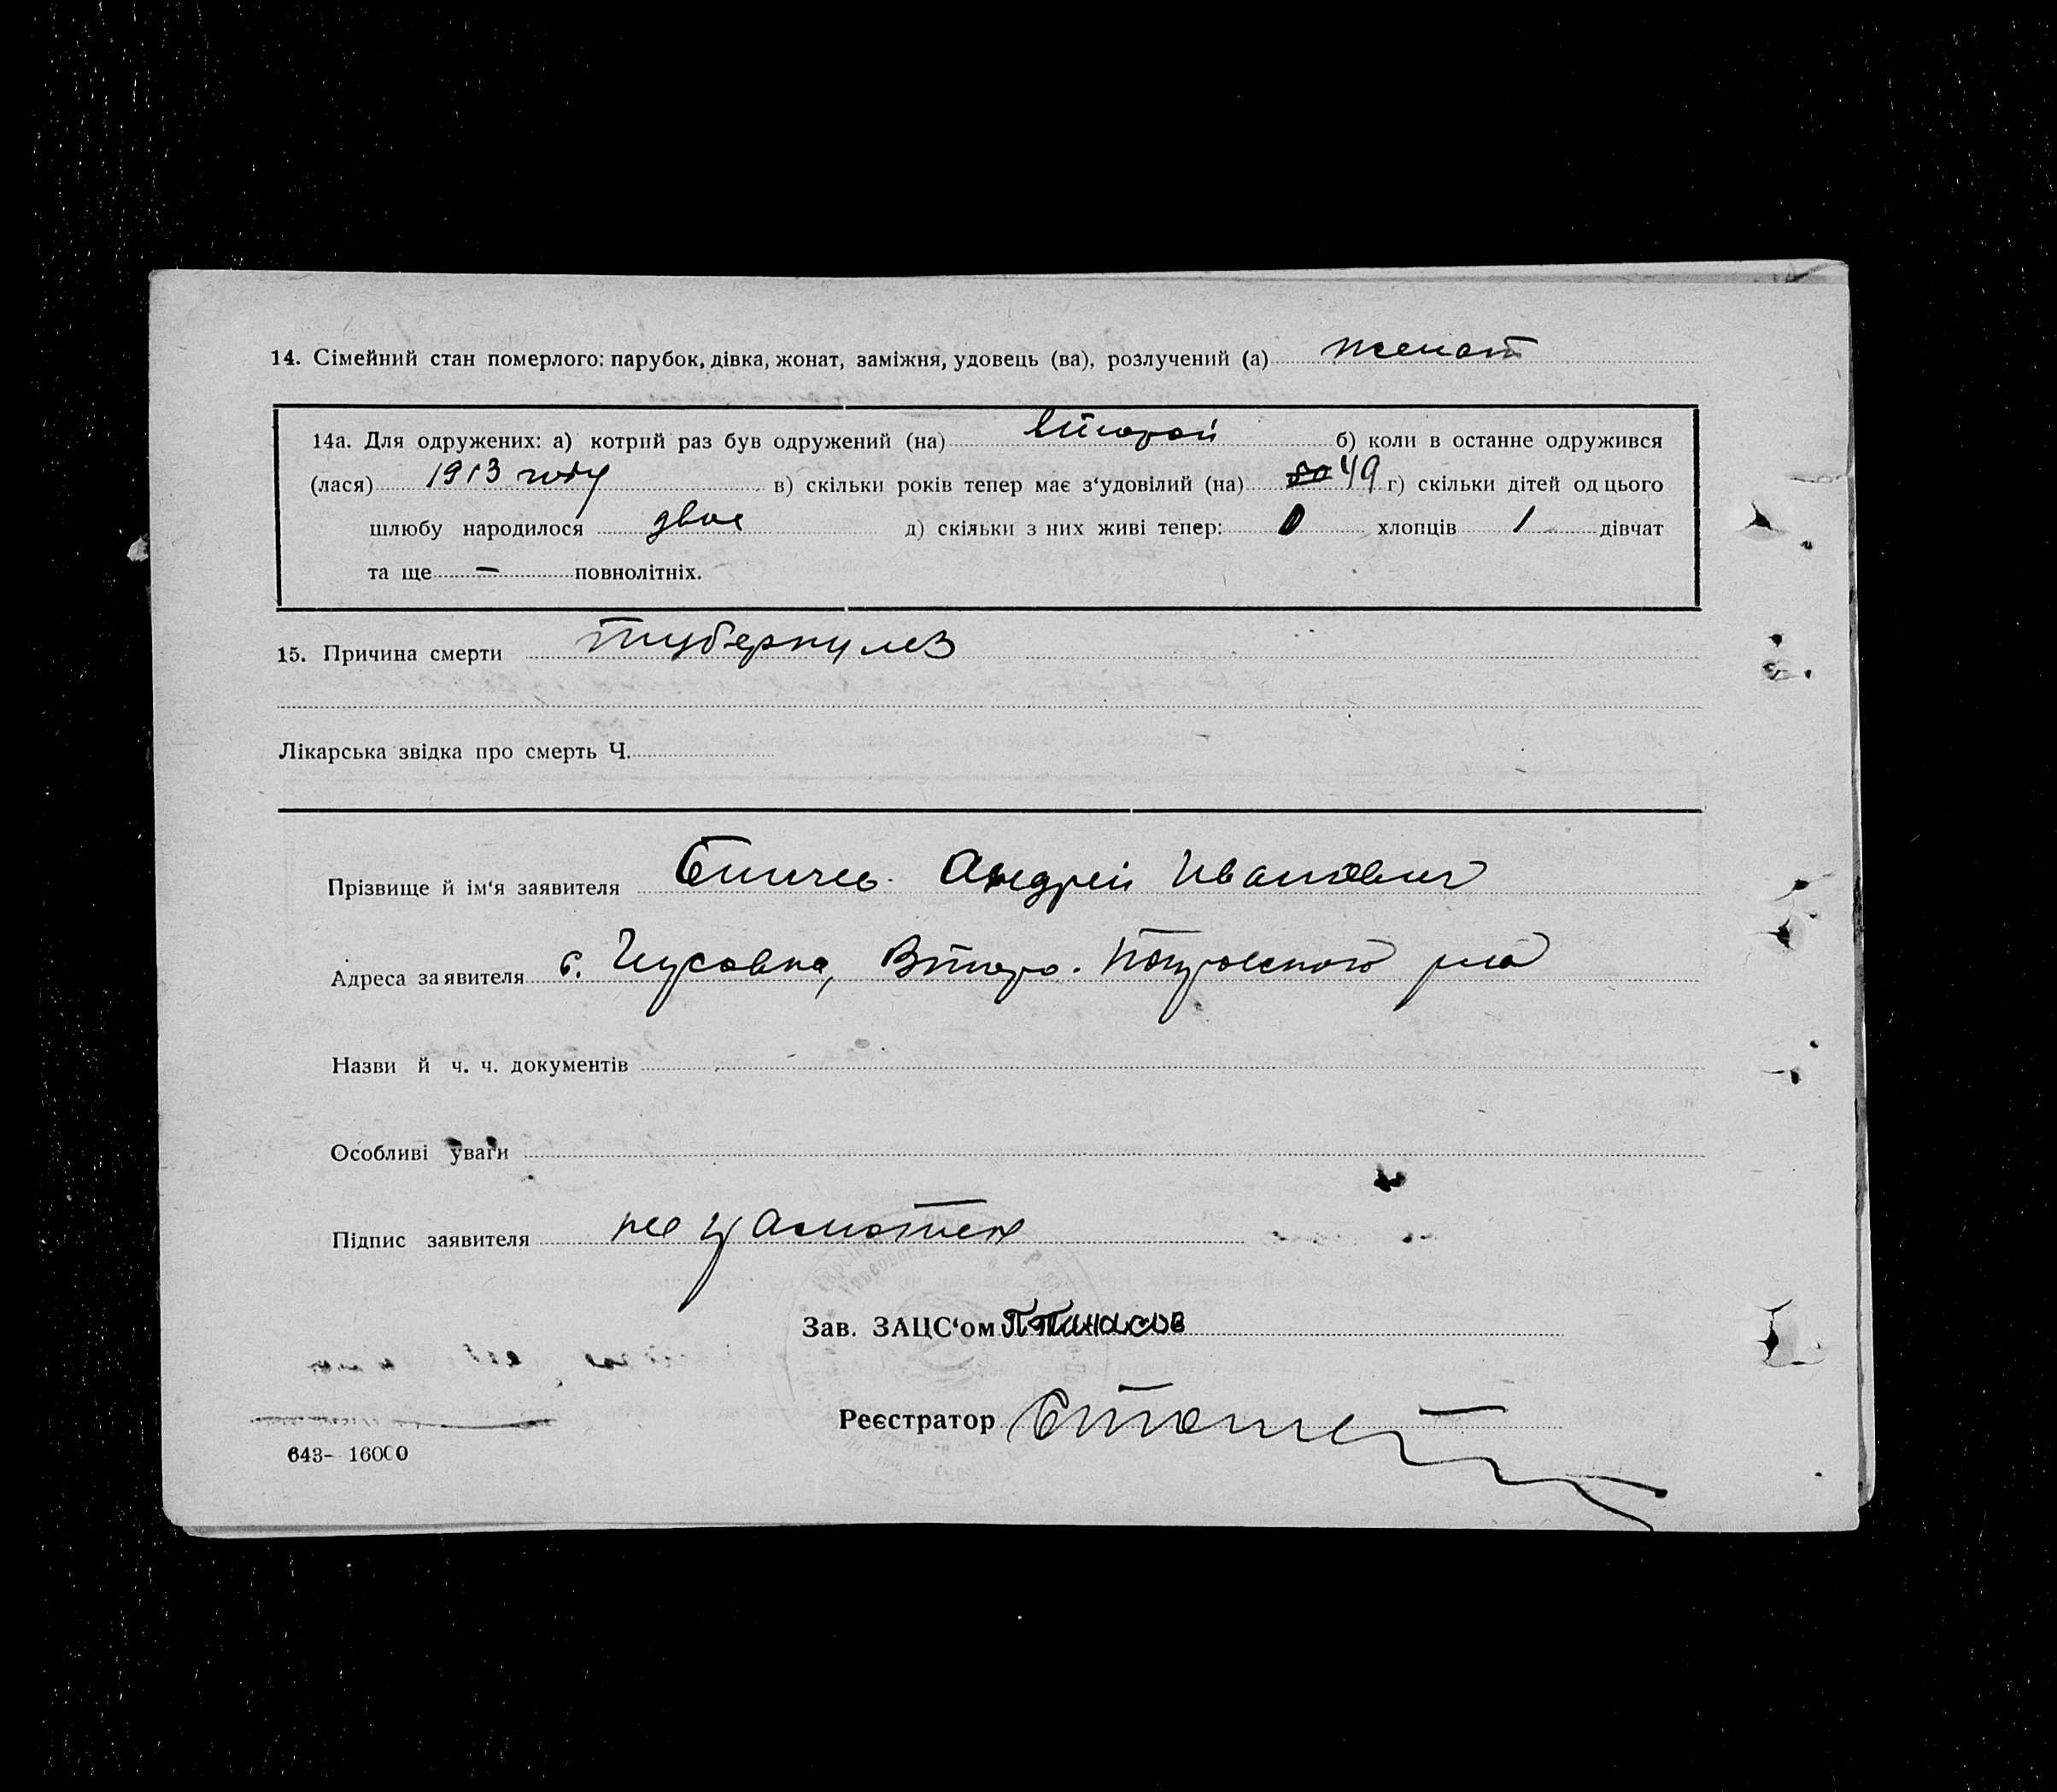 14. Сімейний стан померлого: парубок, дівка, жонат, заміжня, удовець (ва), розлучений (а) женат
14а. Для одружених: а) котрий раз був одружений (на) второй б) коли в останне одружився
(лася) 1913 году в) скільки років тепер має з‘удовілий (на) 49 г) скільки дітей од цього
шлюбу народилося двое д) скільки з них живі тепер: 0 хлопців 1 дівчат
та ще — повнолітніх.
15. Причина смерти туберкулез
Лікарська звідка про смерть Ч.
Прізвище й ім‘я заявителя Андрей Иванович
Адреса заявителя с. Гусовка, Второ. Покровского р-на
Назви й ч. ч. документів
Особливі уваги
Підпис заявителя не грамотен
Зав. ЗАЦС‘ом
Реєстратор
643- 16000